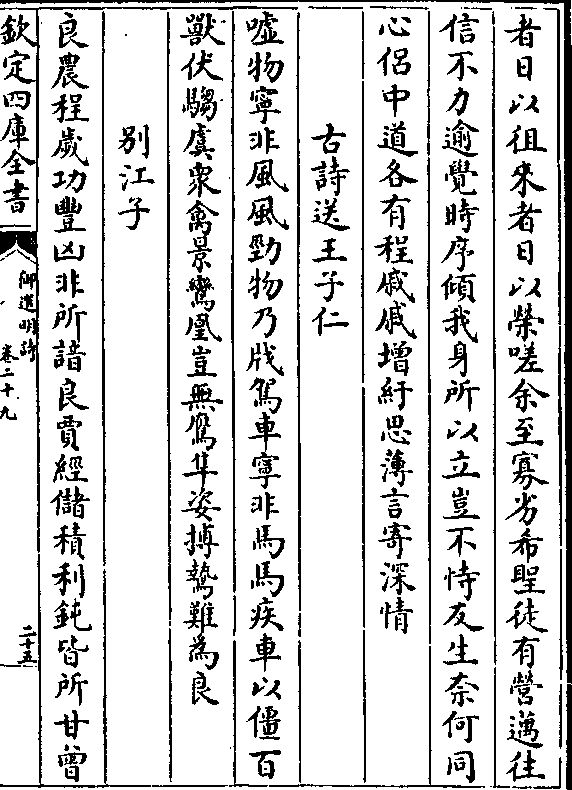 者日以徂來者日以榮嗟余至寡劣希聖徒有營邁往
信不力逾覺時序傾我身所以立豈不恃友生奈何同
心侶中道各有程戚戚增紆思薄言寄深情
古詩送王子仁
噓物寧非風風勁物乃戕駕車寧非馬馬疾車以僵百
獸伏騶虞衆禽景鸞凰豈無鴈隼姿搏鷙難為良
别江子
良農程歲功豐凶非所諳良賈經儲積利鈍皆所甘曾
欽定四庫全書
御選明詩
卷二十九
二十五